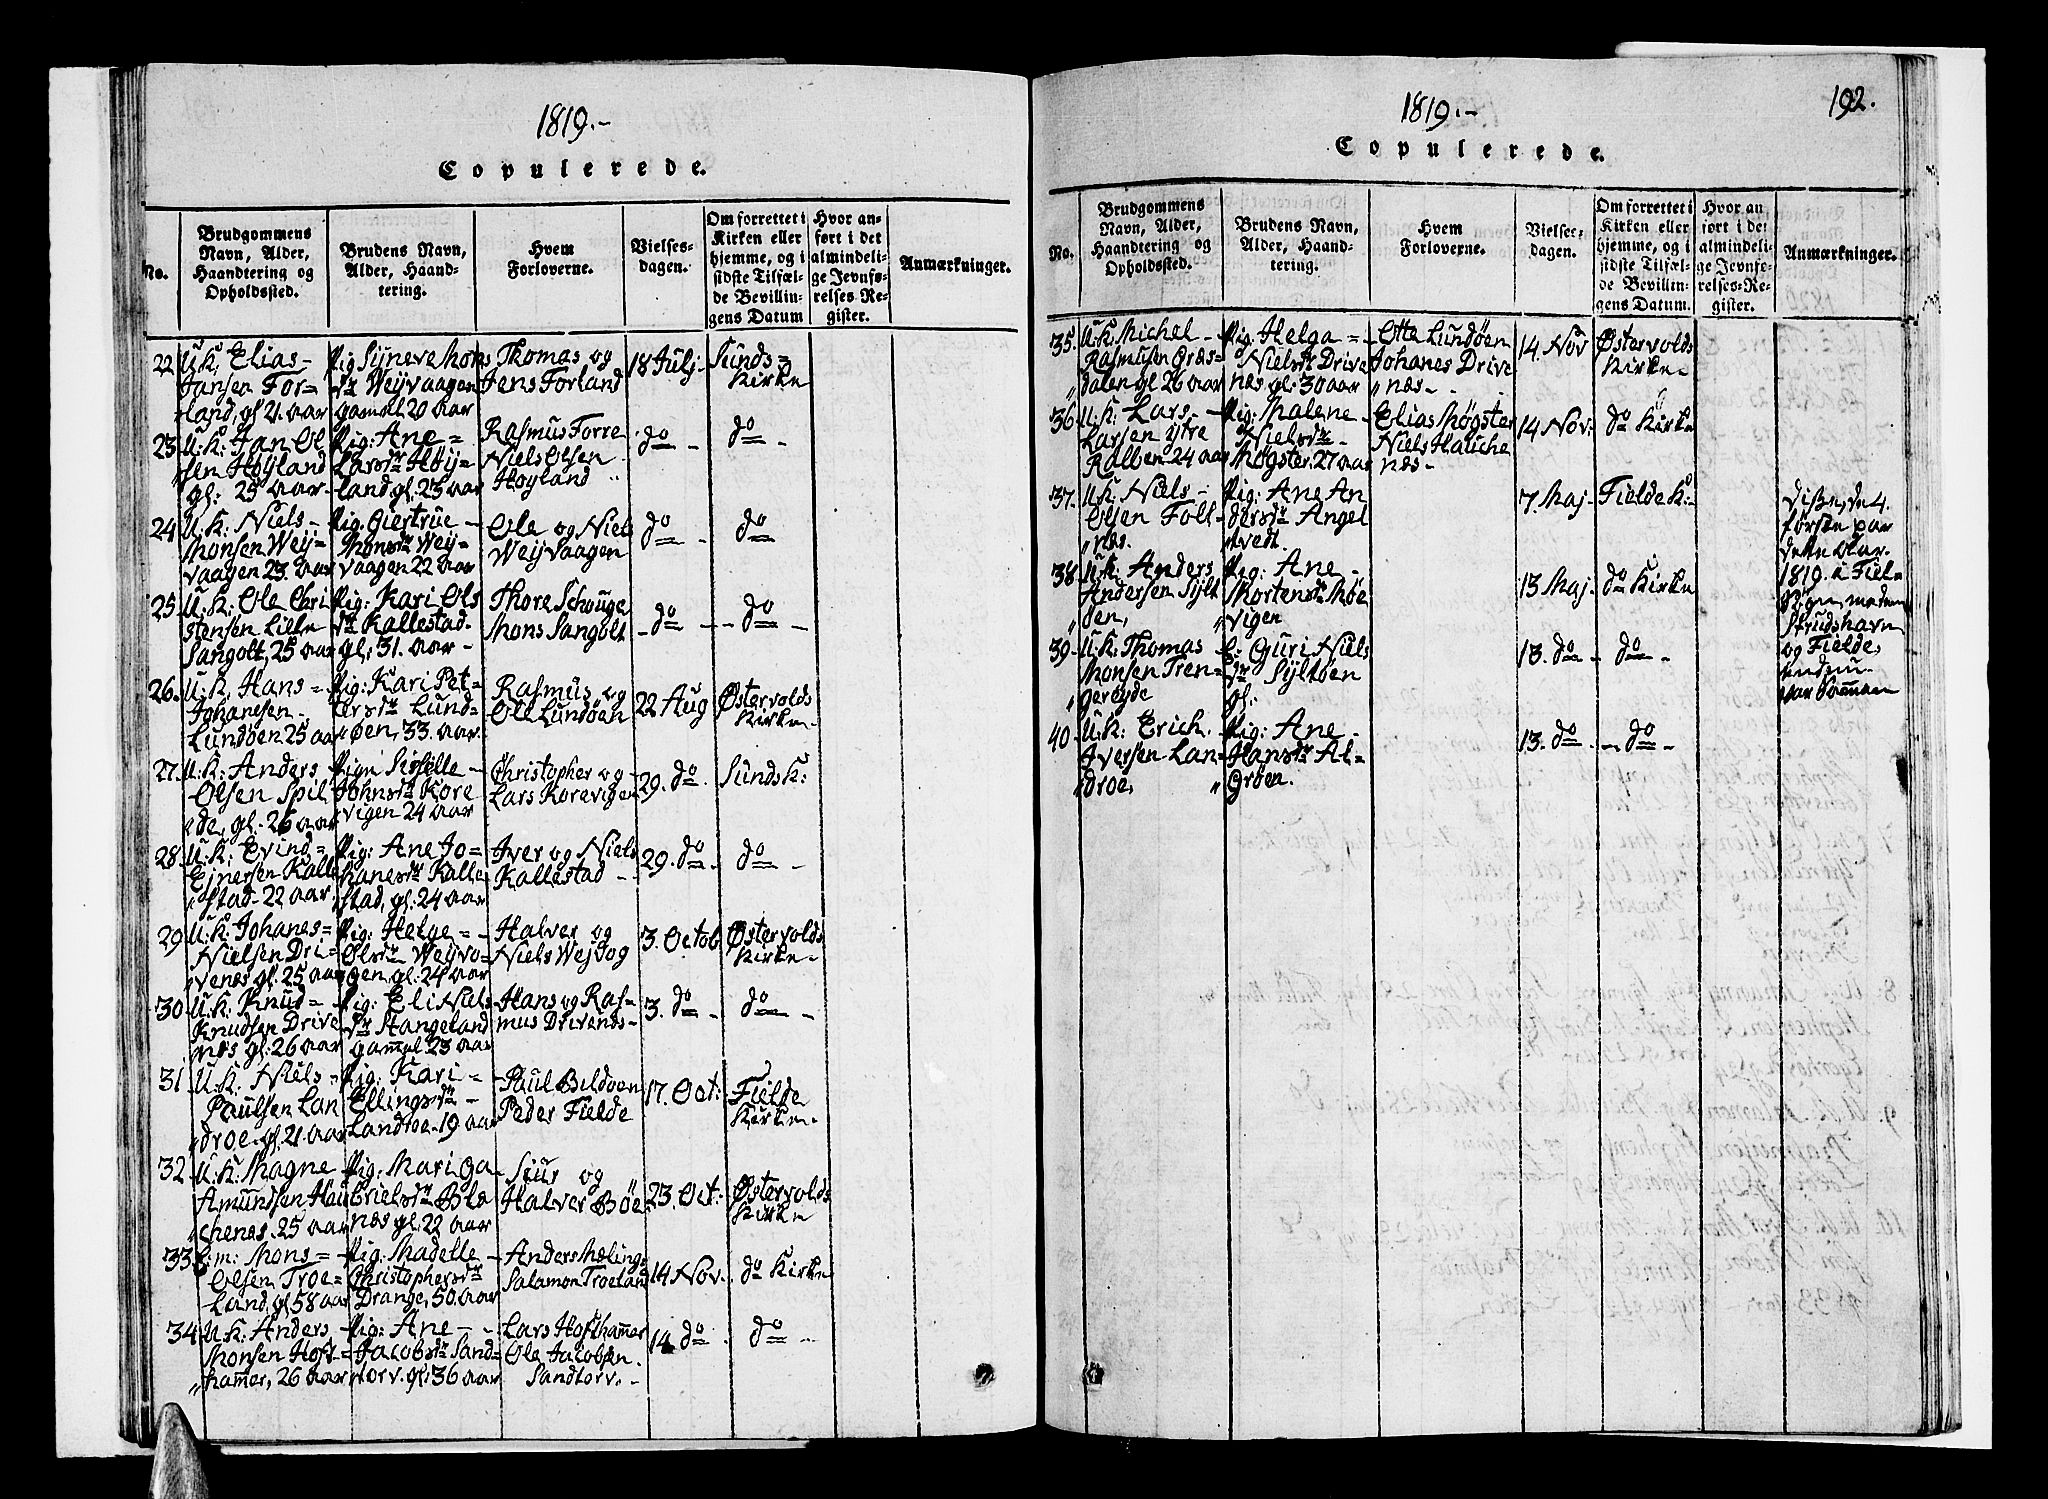 1819.-
Copulerede.
No.
Brudgommens
Navn, Alder,
Haandtering og
Opholdssted.
Brudens Navn,
Alder, Haand-
tering.
Hvem
Forloverne.
Vielses-
dagen.
Om forrettet i
Kirken eller
hjemme, og i
sidste Tilfæl-
de Bevillin-
gens Datum
Hvor an-
ført i det
almindeli-
ge Jevnfø-
relses-Re-
gister.
Anmærkninger.
22 U.K. Elias -
Jansen For=
land, gl 21. aar
Pig. Syneve Mons
dr Weyvaagen
gamel 20 aar
Thomas og
Jens Forland
18 Julj-
Sunds=
Kirke
23 U.K: Jan Ol
sen Høyland
gl: 25 aar-
Pig: Ane =
Larsdr Høy=
land gl: 23 aar
Rasmus Forre
Niels Olsen
Høyland
do -
do -
24 U.K: Niels -
Monsen Wey=
vaagen 23. aar
Pig. Giertrue -
Monsdr Wey-
vaagen 22 aar
Ole og Niels
Weyvaagen
do -
do
25 U.K: Ole Chri
stensen Lille
Sangolt, 25 aar
Pig: Kari Ols
dr Kallestad
gl: 31. aar -
Thore Schouge
Mons Sangolt
- do -
- do -
26. U.K. Hans =
Johanesen.
Lundøen 25 aar
Pig: Kari Pet=
ersdr Lund=
øen, 33. aar.
Rasmus og
Ole Lundøen
22 Aug
Østervolds
Kirke-
27. U.K: Anders -
Olsen Spil
de, gl: 26 aar
Pign Sisselle -
Johnsdr Kore
vigen 24 aar
Christopher og -
Lars Korevigen
29. do.
Sunds K:
28. U.K: Evind=
Ejnersen Kalle
stad - 22 aar.
Pig: Ane Jo-
hanesdr Kalle
stad, gl: 24 aar
Iver og Niels
Kallestad -
29. do -
do -
29 U.K. Johanes=
Nielsen Dri-
venes gl: 25 aar
Pig: Helge = -
Olsdr Weyvo-
gen, gl: 24 aar
Halver og
Niels Wejvog
3. Octob
Østervolds
Kirke-
30 U.K: Knud=
Knudsen Drive
næs gl: 26 aar
Pig: Eli Niels
dr Stangeland
gammel 23 aar
Hans og Ras-
mus Drivends-
3. do -
do -
31 U.K. Niels -
Paulsen Lan
droe. gl. 21. aar
Pig: Kari =
Ellingsdr -
Landroe - 19 aar
Paul Bildøen
Peder Fielde
17. Oct:
Fielde
Kirke-
32 U.K: Magne
Amundsen Hau
chenes. 25 aar
Pig: Mari Ga
brielsdr Bla
næs gl: 22 aar
Siur og
Halver Bøe
23. Oct:
Østervolds
Kirke
33. E:m: Mons =
Olsen Troe=
land, gl 58 aar
Pig: Madelle -
Christophersdr
Drange, 50. aar
Anders Mæling
Salamon Troeland
14 Nov.
do Kirke
34 U.K: Anders -
Monsen Hoft=
hammer, 26 aar
Pig: Ane - -
Jacobsdr Sand=
torv. gl: 36 aar
Lars Hofthammer
Ole Jacobsen.
Sandtorv. -
14 do
do -
1819.-
192.
Copulerede.
No.
Brudgommens
Navn, Alder,
Haandtering og
Opholdssted.
Brudens Navn,
Alder, Haand-
tering.
Hvem
Forloverne.
Vielses-
dagen.
Om forrettet i
Kirken eller
hjemme, og i
sidste Tilfæl-
de Bevillin-
gens Datum.
Hvor an
ført i det
almindeli-
ge Jevnfø-
relses-Re-
gister.
Anmærkninger.
35. U.K: Michel -
Rasmusen Græs-
dalen gl 26 aar
Pig: Helga = -
Nielsdr Drive
næs gl: 30 aar
Otte Lundøen
Johanes Drive
næs -
14. Nov
Østervolds
Kirke-
36 U.K: Lars -
Larsen ystre
Kalven 24 aar
Pig: Malene -
Nielsdr -
Møgster. 27 aar
Elias Møgster
Niels Hauche
næs -
14 Nov:
do Kirke
37. U.K: Niels -
Olsen Folt-
næs.
Pig: Ane An
dersdr Angel
tvedt.
7. Maj-
Fielde K:
Disse, de 4.
første par
dette Aar.
1819. i Fiel-
Sogn, medens
Strudshavn
og Fielde,
endnu
var sammen
38 U.K. Anders
Andersen Sylt
øen,
Pig: Ane -
Mortensdr Møe
vigen
13 Maj-
do Kirke
39 U.K: Thomas -
Monsen Tren-
gereyde
E: Guri Niels
dr Syltøen
gl.
13. do -
do -
40 U.K: Erich. -
Iversen Lan-
droe,
Pig: Ane -
Hansdr Al-
grøen.
13. do -
- do -